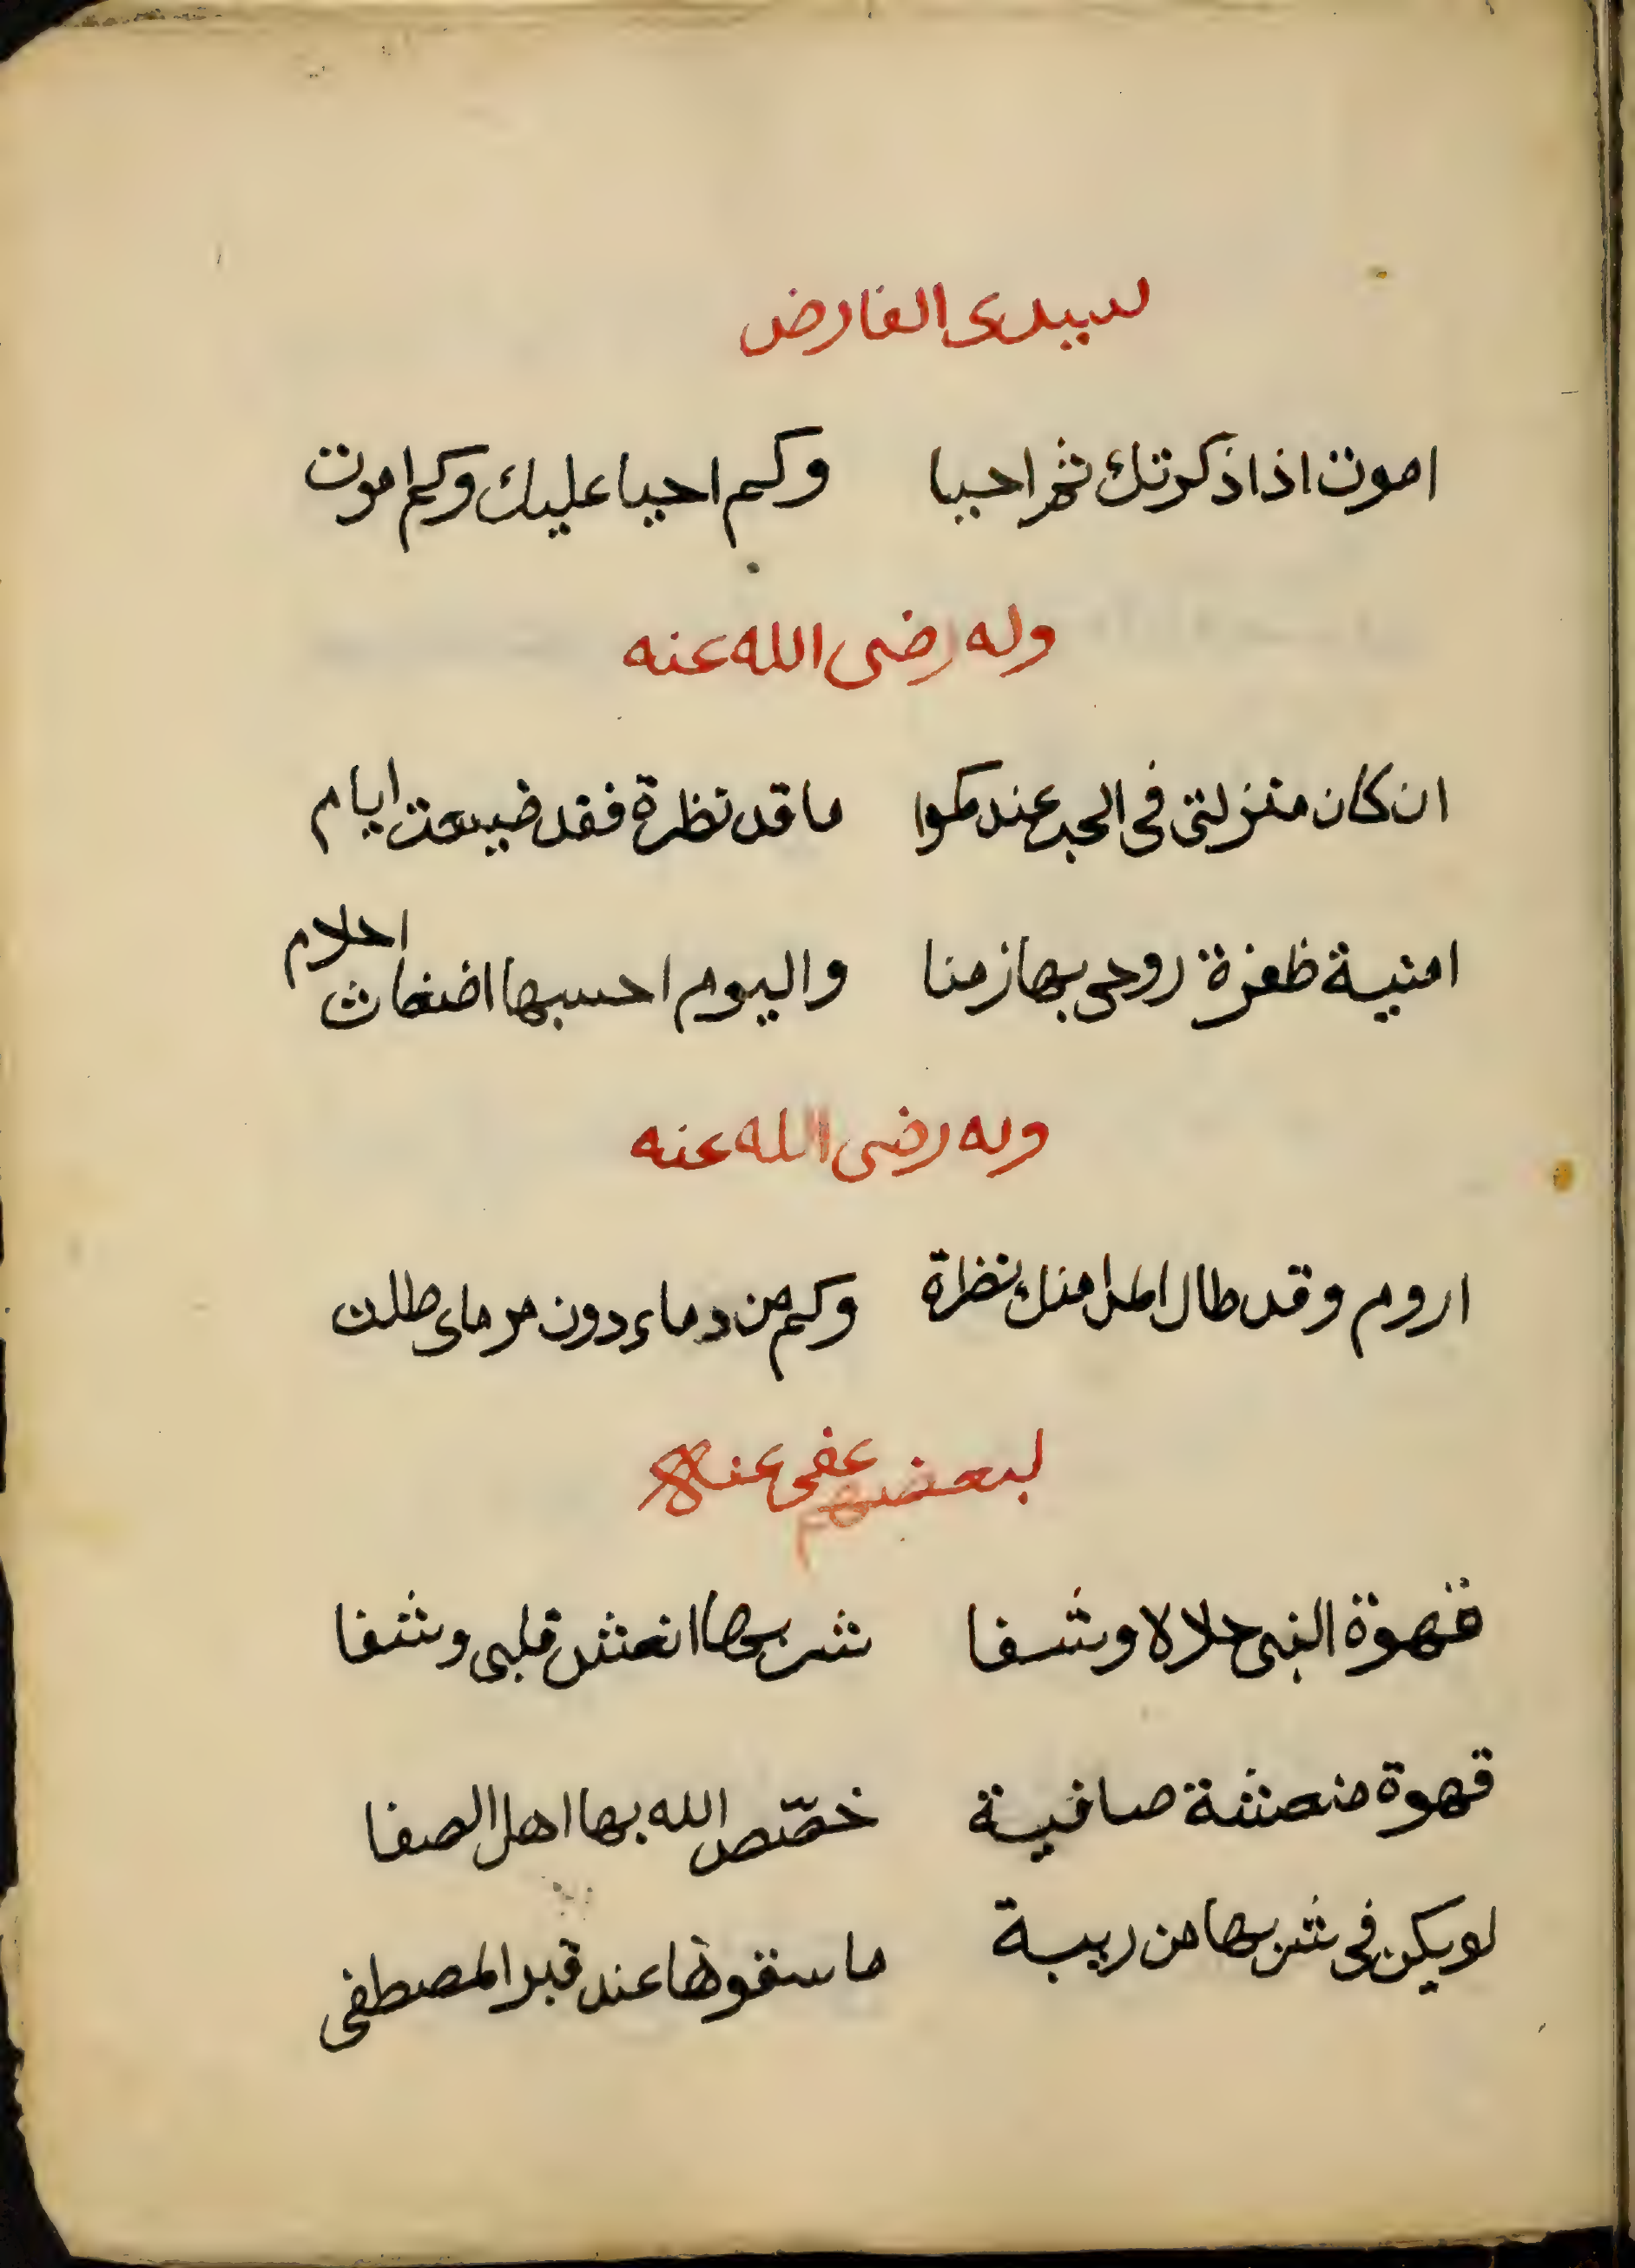 لسيدى الفارض
اموت اذا ذكرتك ثم احيا وكم احيا عليك وكم اموت
وله رضى الله عنه
ان كان منزلتى فى الحب عندكموا ما قد نظرة فقد ضيعت ايام
امنية ظفرة روحى بها زمنا واليوم احسبها اضغاث احلام
وله رضى الله عنه
اروم وقد طال المدا منك نضراة وكم من دماء دون مرماى طلت
لبعضهم عفى عناه
قهوة البنى حلالا وشفا شربها انعش قلبى وشفا
قهوة منعشة صافية خصّص الله بها اهل الصفا
لو يكن فى شربها من ريبة ما سقوها عند قبر المصطفى